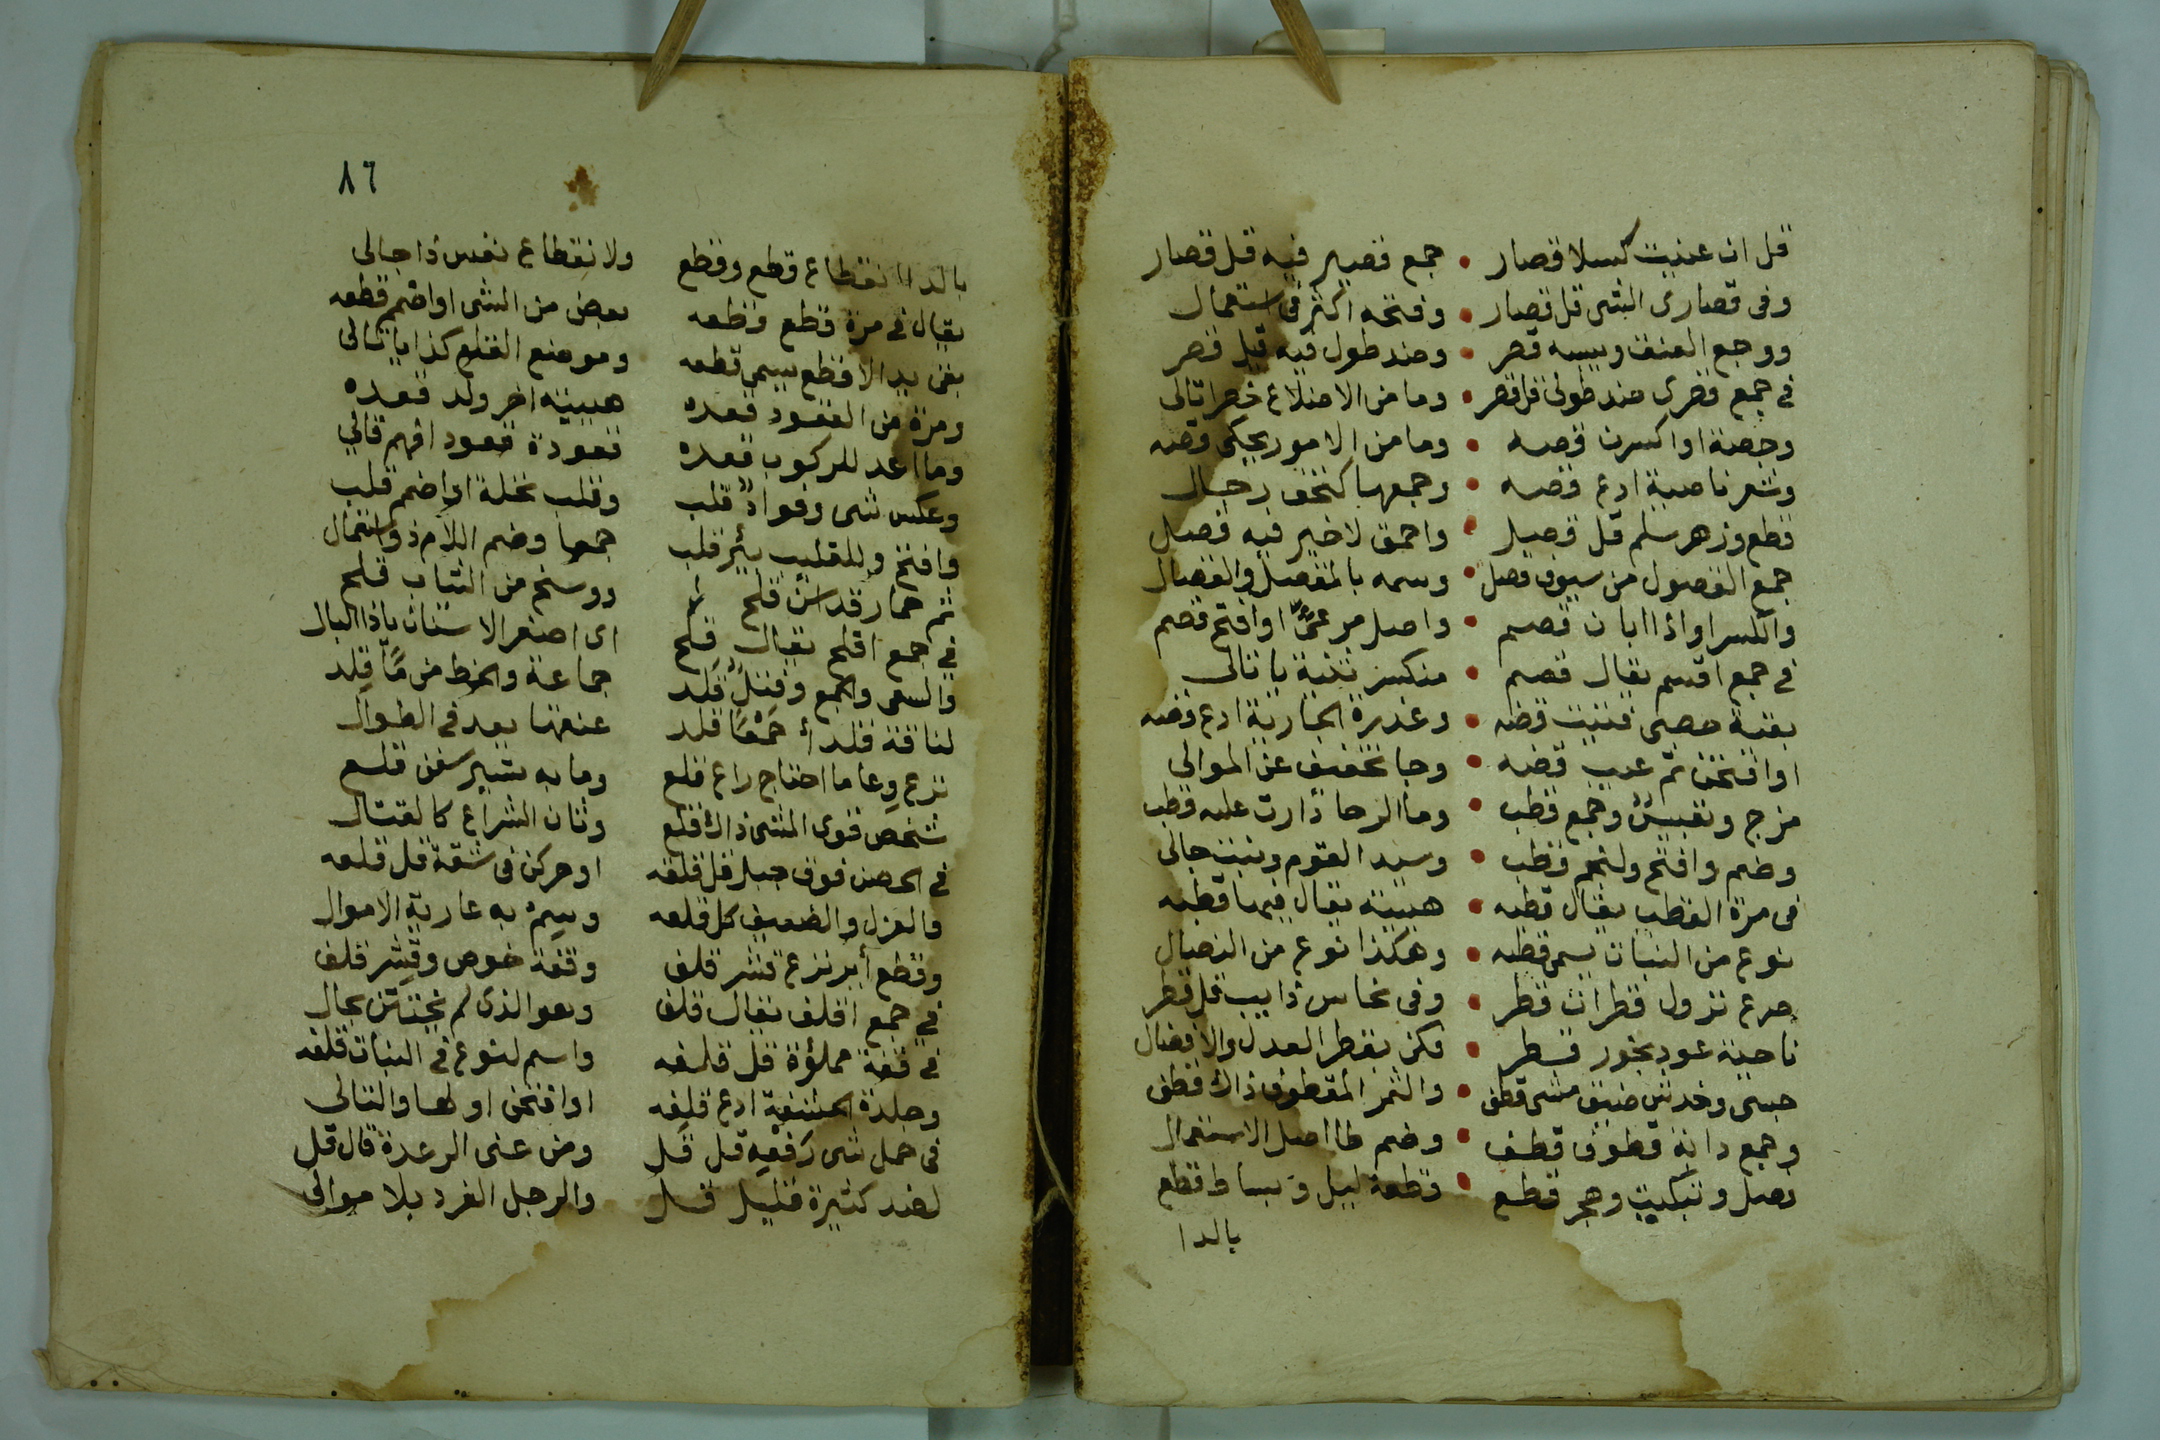 قل ان عنيت كسلا قصار • جمع قصير فيه قل قصار
وفى قصارى الشى قل قصار • وفتحه اكثر فى استعمال
ووجع العنق ويبسه قصر • وضد طول فيه قيل قصر
فى جمع قصرى ضد طولى قل قصر • وما من الاضلاع خصرا تالى
وجصة او اكسرن قصه • وما من الامور يحكى قصه
وشعر ناصية ادع قصه • وجمعها كنخف رجال
قطع وزهر سلم قل قصيل • واحمق لاخير فيه قصل
جمع القصول من سيوف قصل • وسمه بالمقصل والقصال
واكسر او اذا ابان قصم • واصل مرعىً او افتح قصم
فى جمع اقسم يقال قصم • منكسر ثنية يا تالى
بقية حصى فنيت قضه • وعذرة الجارية ادع قضه
او افتحن ثم عيب قضه • وجا تخفيف عن الموالى
مزج وتعبيس وجمع قطب • وما الرحا دارت عليه قطب
وضم وافتح ولنجم قطب • وسيد القوم ونبت جالى
فى مرة القطب يقال قطبه • هيئته يقال فيها قطبه
نوع من النبات يسمى قطبه • وهكذا نوع من النصال
صرع نزول قطرات قطر • وفى نحاس ذايب قل قطر
ناحية عود بخور قطر • فكن بقطر العدل والافضال
جنى وخدش ضيق مشى قطف • والثمر المقطوف ذاك قطف
وجمع دابة قطوف قطف • وضم طا اصل الاستعمال
فصل وتبكيت وهجر قطع • قطعة ليل وبساط قطع
بالدا
٨٦
بالدا انقطاع قطع وقطع ولانقطاع نفس ذا جالى
يقال فى مرة قطع قطعه بعض من الشى او اضم قطعه
بقى يد الاقطع يسمى قطعه وموضع القلع كذا يا تالى
ومرة من القعود قعده هيئته اخر ولد قعده
وما اعد للركوب قعده قعودة قعود افهم قالى
وعكس شى وفواد قلب وقلب نخلة او اضم قلب
وافتح وللقليب بئر قلب جمعا وضم اللام ذو استعمال
ثم حمار قد اسن قلح ووسخ من الثياب قلح
فى جمع اقلح يقال قلح اى اصفر الاسنان يا ذا البال
والسقى والجمع وفتل قلد جماعة والحظ من مًا قلد
لناقة قلدأ جمعًا قلد عنقها بعد فى الطوال
نزع وعا ما احتاج راع قلع وما به تسير سفن قلع
شخص قوى المشى ذاك قلع وثان الشراع كالقتال
فى الحصن فوق جبل قل قلعه او حركن فى شقة قل قلعه
والعزل والضعيف كل قلعه وسم به عارية الاموال
وقطع أير نزع قشر قلف وقفة خوص وقشر قلف
فى جمع اقلف يقال قلف وهو الذى لم يختتن بحال
فى قفة مملؤة قل قلفه واسم لنوع فى النبات قلفه
وجلدة الحشفة ادع قلفه او افتحن اولها والتالى
فى حمل شى رفعه قل قل ومن عنى الرعدة قال قل
لضد كثيرة قليل قل والرجل الفرد بلا موالى